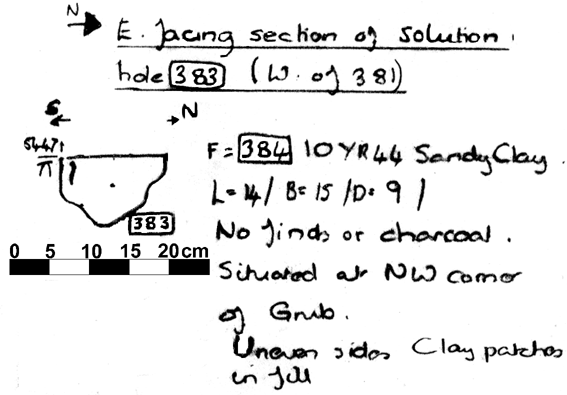 N
E. facing section of solution
hole 383 (W. of 381)
S N
F = 384 10YR44 Sandy Clay.
L= 14/ B= 15 /D= 9 /
383
No finds or charcoal.
0 5 10 15 20cm
Situated at NW corner
of Grub.
Uneven sides Clay patches
in fill